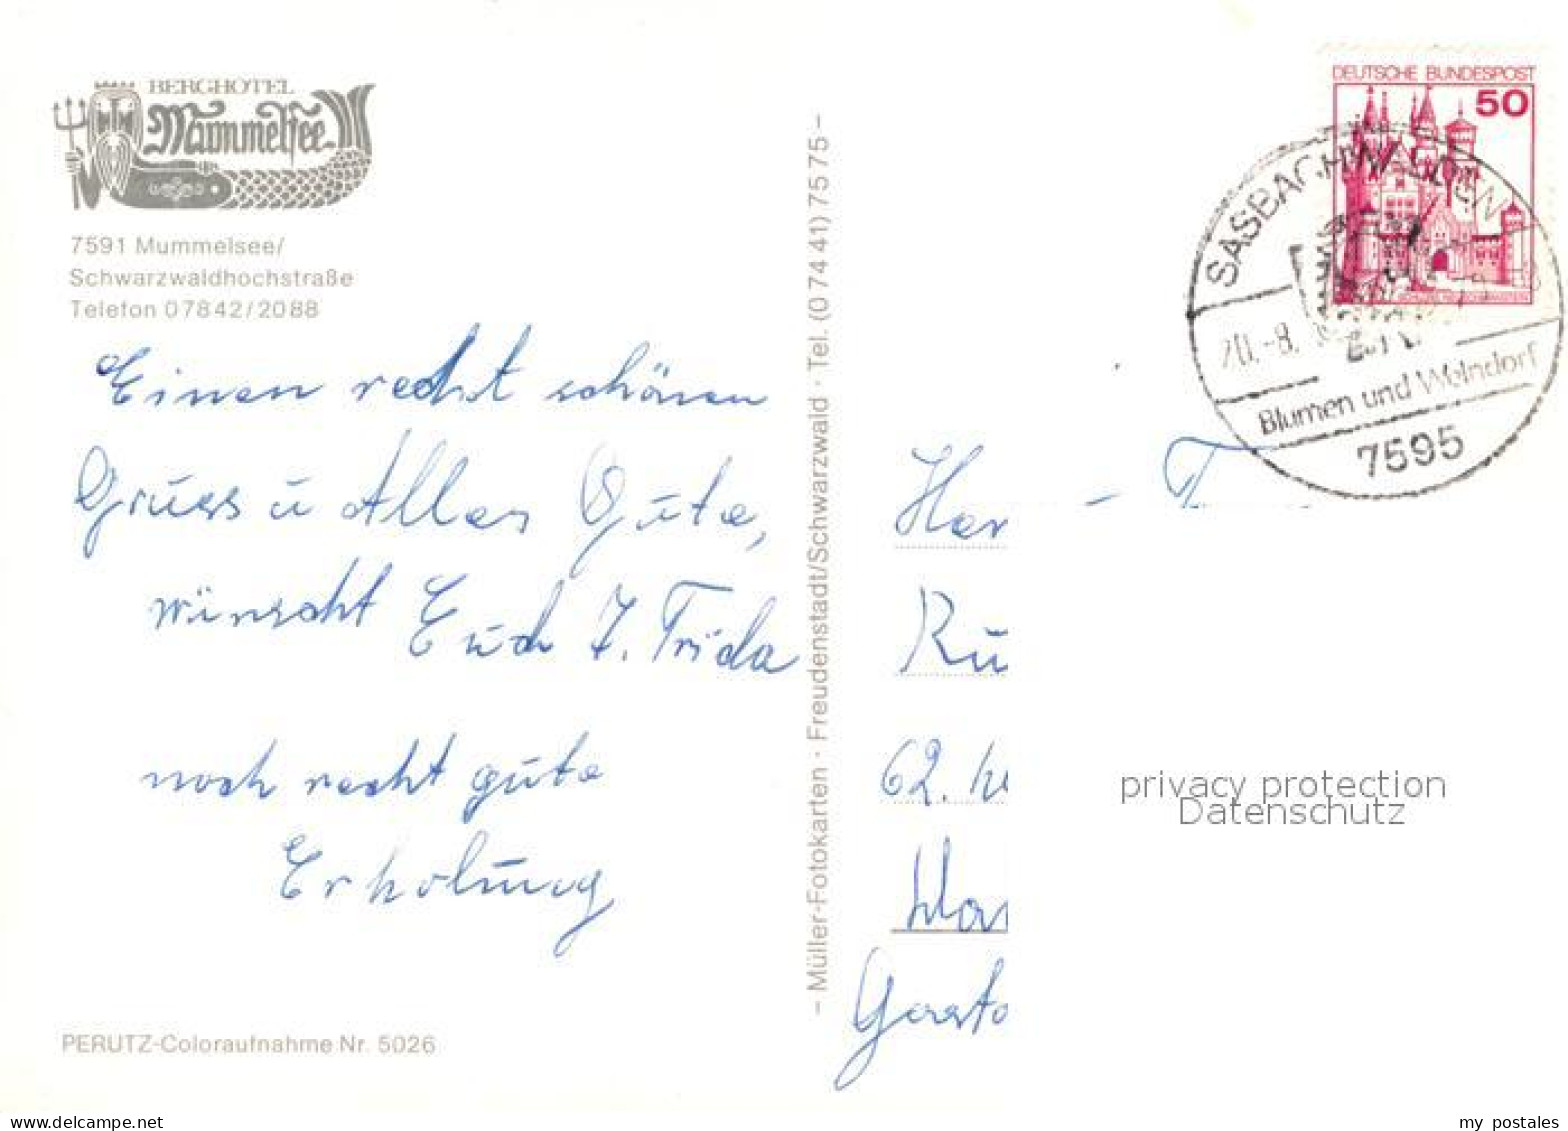 BERGHOTEL
Mummelsee
7591 Mummelsee/
Schwarzwaldhochstraße
Telefon 07842/2088
Einen recht schönen
Gruss u Alles Gute,
wünscht Euch F. Frida
noch recht gute
Erholung
PERUTZ-Coloraufnahme Nr. 5026
– Müller-Fotokarten · Freudenstadt/Schwarzwald · Tel. (0 74 41) 75 75 –
DEUTSCHE BUNDESPOST
50
SASBACHWALDEN
20.-8.
Blumen und Weindorf
7595
Her
Ru
62.
Gasto
privacy protection
Datenschutz
www.delcampe.net
my_postales